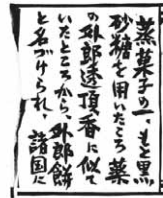 蒸菓子の一、もと黒
砂糖を用いたころ薬
の外郎透頂香に似て
いたところから、外郎餅
と名づけられ、諸国に